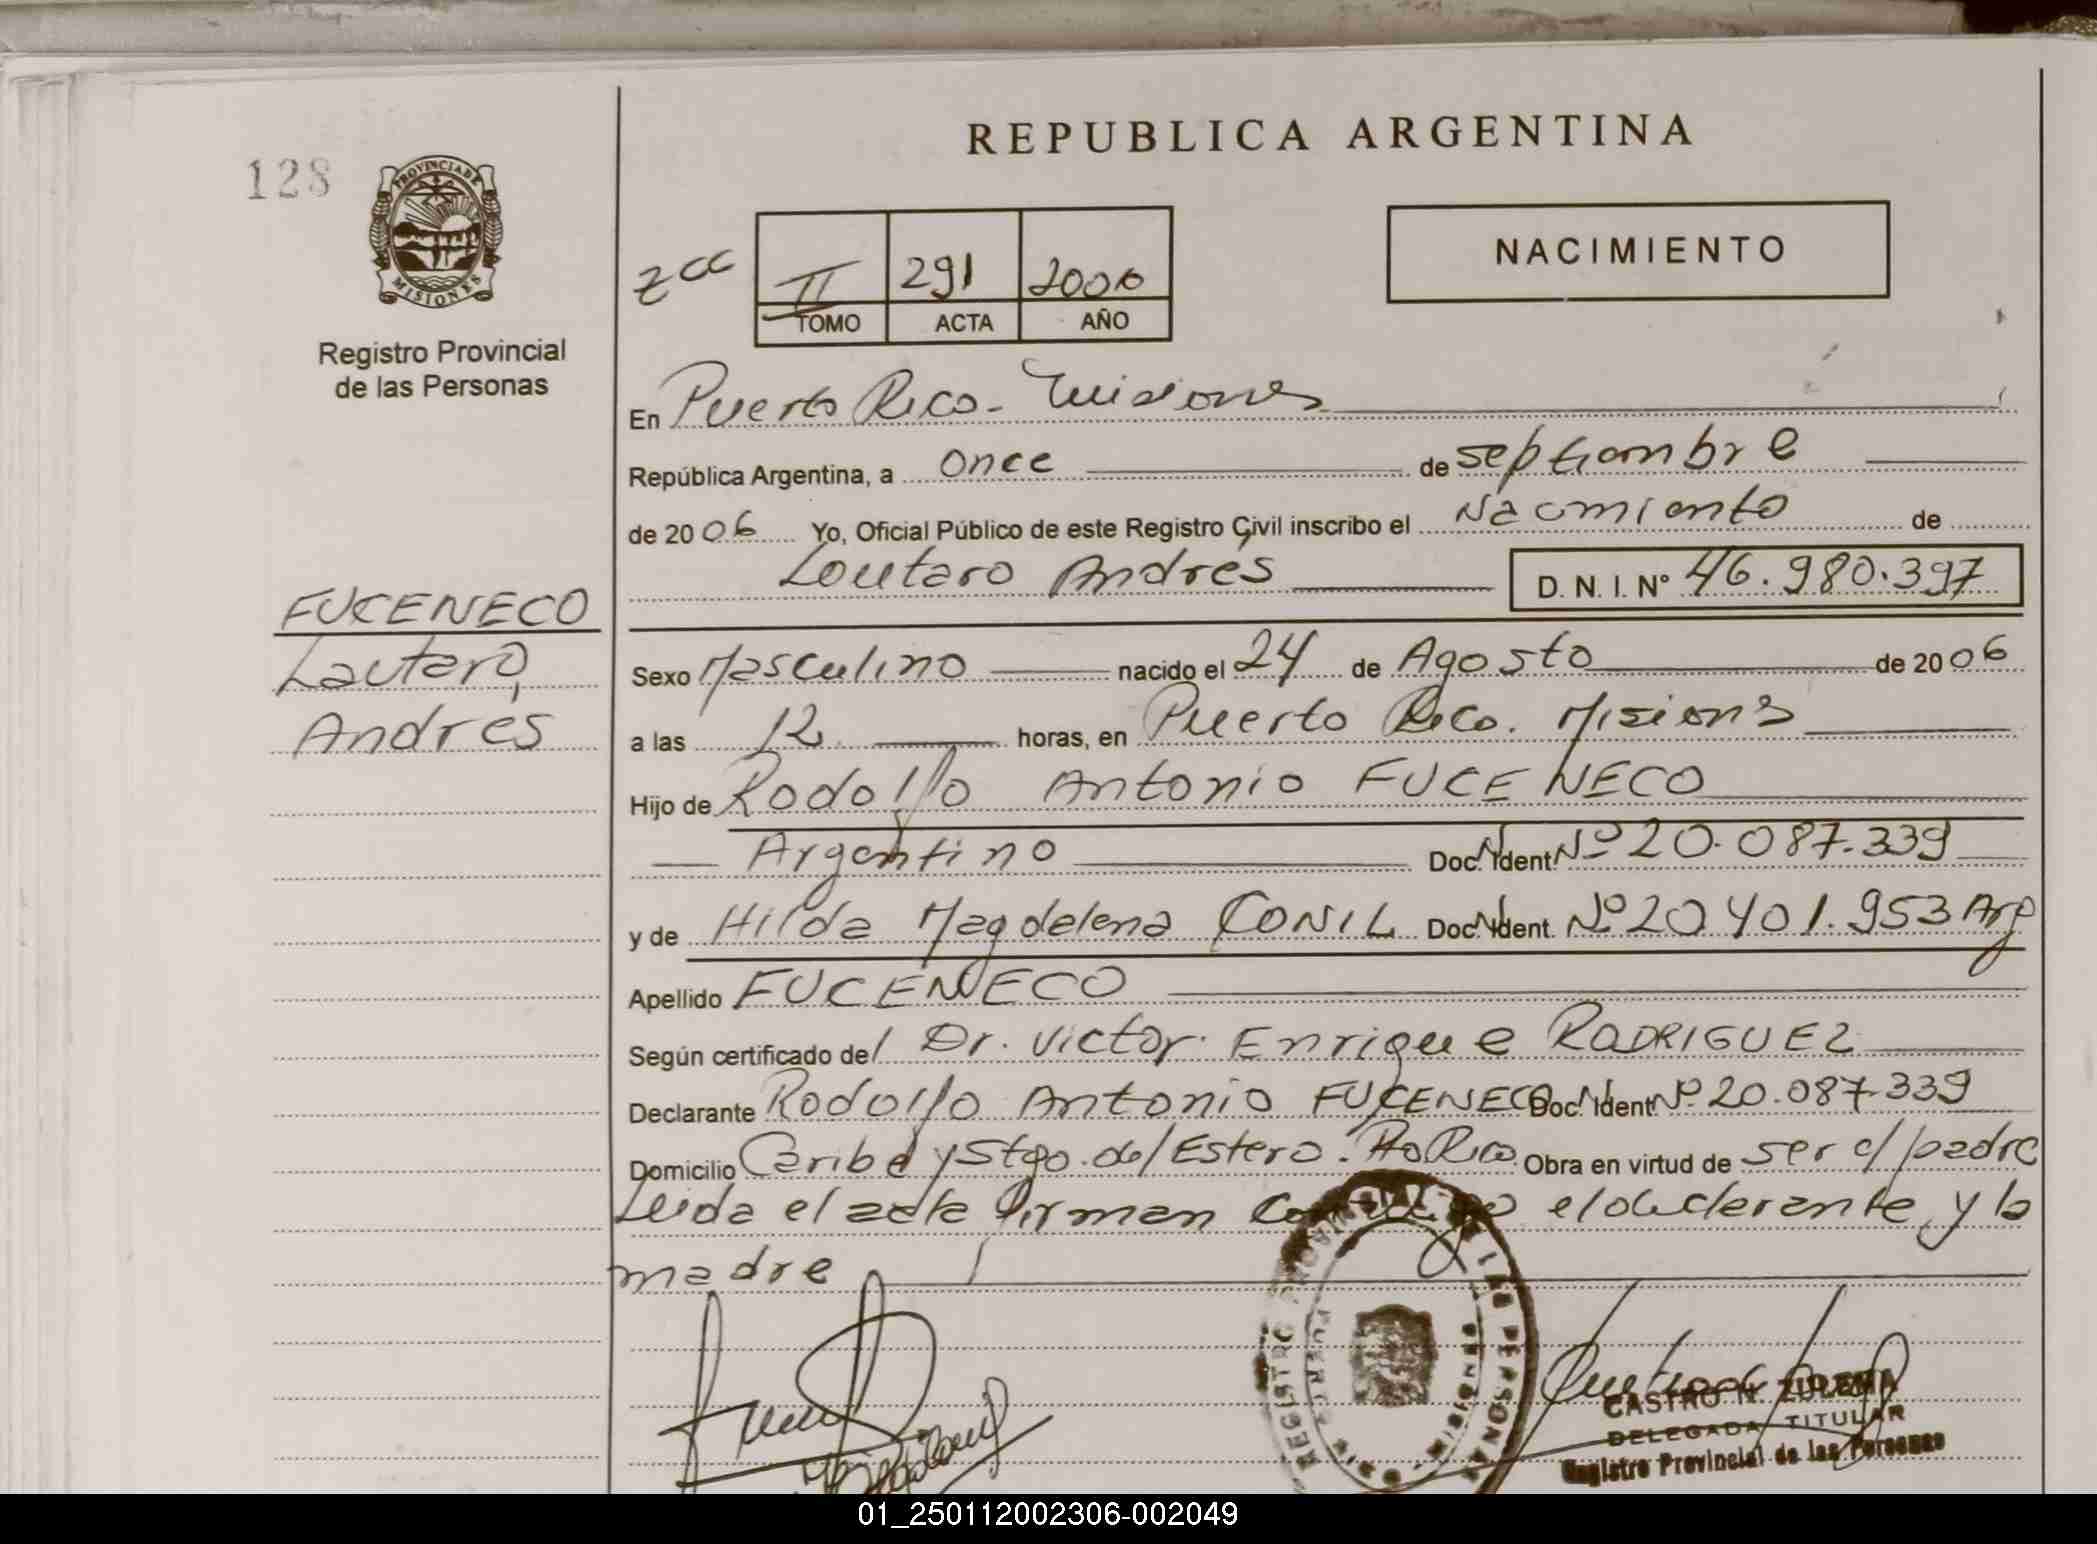 REPUBLICA ARGENTINA
128
PROVINCIA DE
MISIONES
Registro Provincial
de las Personas
NACIMIENTO
zcc
II 291 2006
TOMO ACTA AÑO
En Puerto Rico - Misiones
República Argentina, a Once de septiembre
de 2006 Yo, Oficial Público de este Registro Civil inscribo el Nacimiento de
Lautaro Andrés D. N. I. Nº 46.980.397
FUCENECO
Lautaro,
Andrés
Sexo Masculino nacido el 24 de Agosto de 2006
a las 12 horas, en Puerto Rico. Misiones
Hijo de Rodolfo Antonio FUCENECO
Argentino Doc. N. Ident Nº 20.087.339
y de Hilda Magdalena CONIL Doc. N. Ident. Nº 20.401.953 Arg
Apellido FUCENECO
Según certificado del Dr. Victor Enrique RODRIGUEZ
Declarante Rodolfo Antonio FUCENECO Doc. N. Ident Nº 20.087.339
Domicilio Caribe y Stgo. del Estero. Pto Rico Obra en virtud de ser el padre
Leida el acta firman conmigo el declarante y la
madre
REGISTRO PROVINCIAL DE LAS PERSONAS
CASTRO N. ZULEMA
DELEGADA TITULAR
Registro Provincial de las Personas
01_250112002306-002049